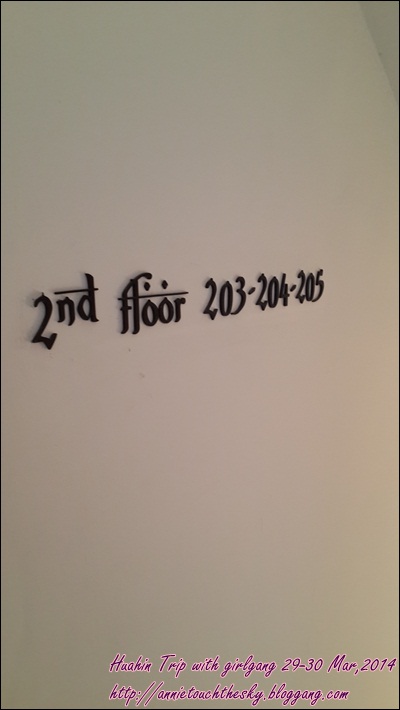 2nd floor 203-204-205
Huahin Trip with girlgang 29-30 Mar,2014
http://annietouchthesky.bloggang.com